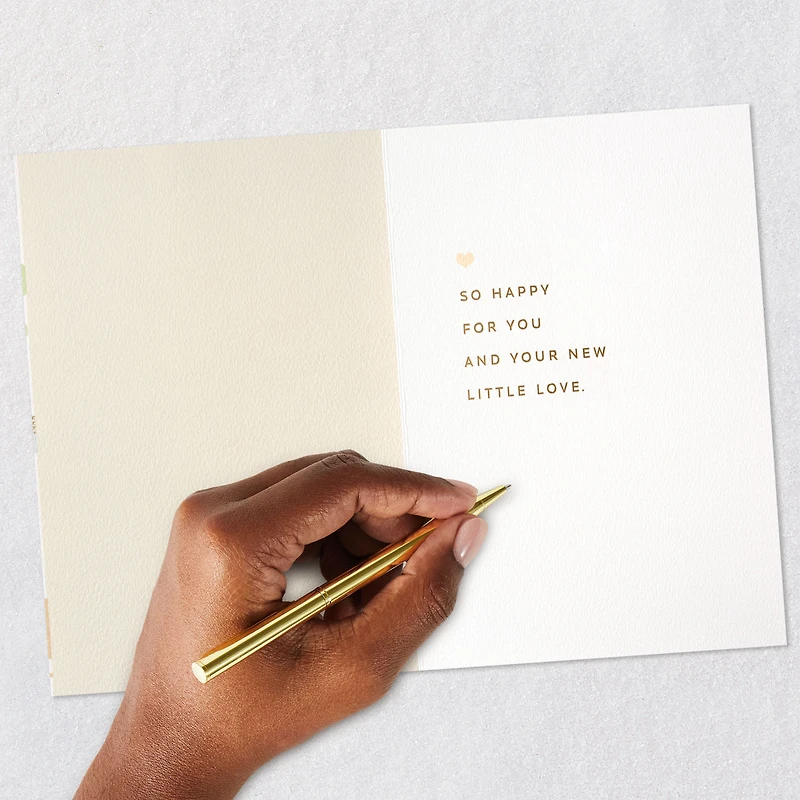 SO HAPPY
FOR YOU
AND YOUR NEW
LITTLE LOVE.